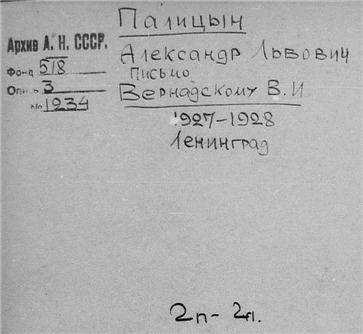 Палицын
Архив А. Н. СССР.
Фонд 518
Опись 3
№ 1234
Александр Львович
Письмо
Вернадскому В. И
1927-1928
Ленинград
2п- 2л.